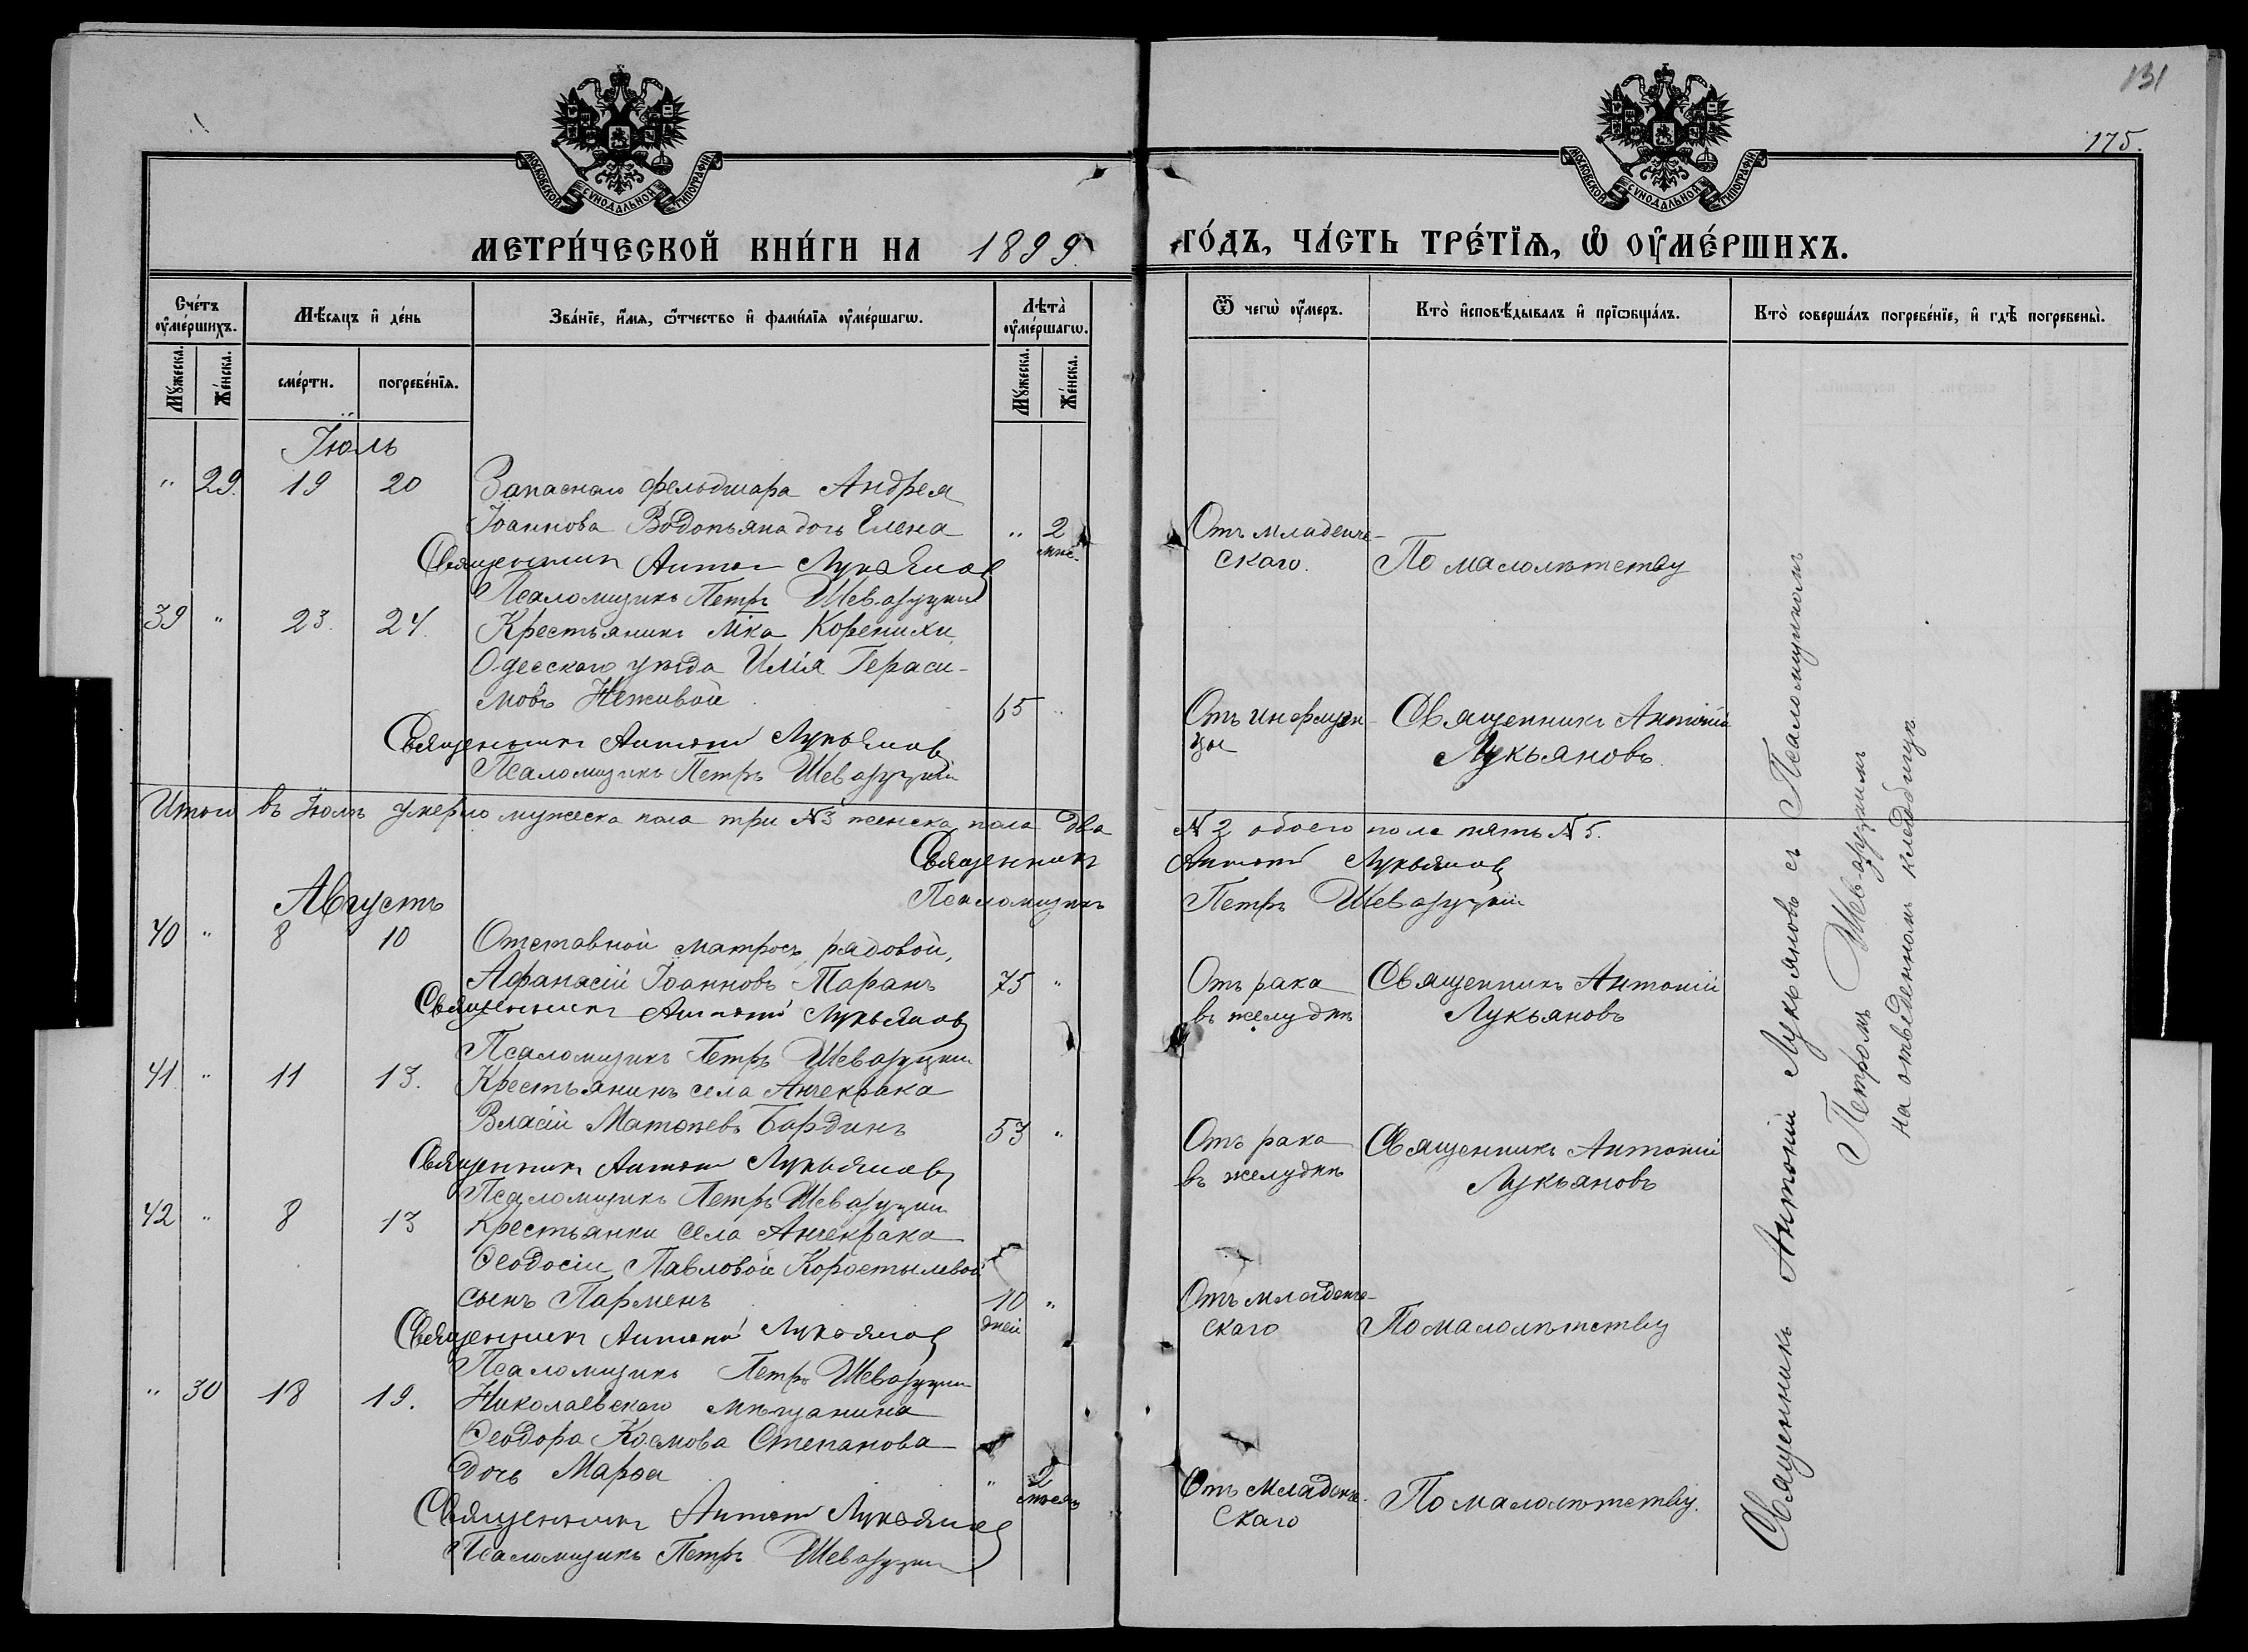 131
175.
МОСКОВСКОЙ СУНОДАЛЬНОЙ ТИПОГРАФІИ
МОСКОВСКОЙ СУНОДАЛЬНОЙ ТИПОГРАФІИ
МЕТРИ́ЧЕСКОЙ КНИ́ГИ НА 1899
ГО́ДЪ, ЧА́СТЬ ТРЕ́ТЇѦ, Ѡ҆ ОУ҆МЕ́РШИХЪ.
Сче́тъ оу҆ме́ршихъ.
Мѣ́сяцъ и҆ де́нь
Зва́нїе, и҆́мѧ, ѻ҆́тчество и҆ фами́лїѧ оу҆ме́ршагѡ.
Лѣта̀ оу҆ме́ршагѡ.
Ѿ чегѡ̀ оу҆́меръ.
Кто̀ и҆сповѣ́дывалъ и҆ прїѡбща́лъ.
Кто̀ соверша́лъ погребе́нїе, и҆ гдѣ̀ погребены̀.
Мꙋ́жеска.
Же́нска.
сме́рти.
погребе́нїѧ.
Мꙋ́жеска.
Же́нска.
Іюль
" 29. 19 20 Запаснаго фельдшара Андрея
Іоаннова Водопьяна дочь Елена " 2 мѣс.
Отъ младенче-
скаго. По малолѣтству
Священникъ Антоній Лукьяновъ
Псаломщикъ Петръ Шеваруцкій
39 " 23. 24. Крестьянинъ м-ка Коренихи,
Одесскаго уѣзда Илія Гераси-
мовъ Неживой 65 "
Отъ инфлуэн-
цы Священникъ Антоній
Лукьяновъ.
Священникъ Антоній Лукьяновъ
Псаломщикъ Петръ Шеваруцкій
Итого въ Іюлѣ умерло мужеска пола три №3 женска пола два
№ 2 обоего пола пять № 5.
Священникъ Антоній Лукьяновъ
Псаломщикъ Петръ Шеваруцкій
Августъ
40 " 8 10 Отставной матросъ, рядовой,
Афанасій Іоанновъ Таранъ 75 "
Отъ рака
въ желудкѣ Священникъ Антоній
Лукьяновъ
Священникъ Антоній Лукьяновъ
Псаломщикъ Петръ Шеваруцкій
41 " 11 13. Крестьянинъ села Анчекрака
Власій Матѳеевъ Бардинъ 53 "
Отъ рака
въ желудкѣ Священникъ Антоній
Лукьяновъ
Священникъ Антоній Лукьяновъ
Псаломщикъ Петръ Шеваруцкій
42 " 8 13 Крестьянки села Анчекрака
Ѳеодосіи Павловой Коростылевой
сынъ Парменъ 10 "
дней
Отъ младенче-
скаго По малолѣтству
Священникъ Антоній Лукьяновъ
Псаломщикъ Петръ Шеваруцкій
" 30 18 19. Николаевскаго мѣщанина
Ѳеодора Космова Степанова
дочь Марѳа " 2
мѣсяц
Отъ младенче-
скаго По малолѣтству.
Священникъ Антоній Лукьяновъ
Псаломщикъ Петръ Шеваруцкій
Священникъ Антоній Лукьяновъ съ Псаломщикомъ
Петромъ Шеваруцкимъ
на отведенномъ кладбищѣ